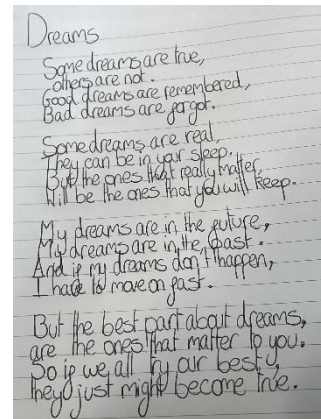 Dreams
Some dreams are true,
others are not.
Good dreams are remembered,
Bad dreams are forgot.
Some dreams are real,
They can be in your sleep.
But the ones that really matter,
Will be the ones that you will keep.
My dreams are in the future,
My dreams are in the, past.
And if my dreams don't happen,
I have to move on fast.
But the best part about dreams,
are the ones that matter to you.
So if we all try our best,
they just might become true.